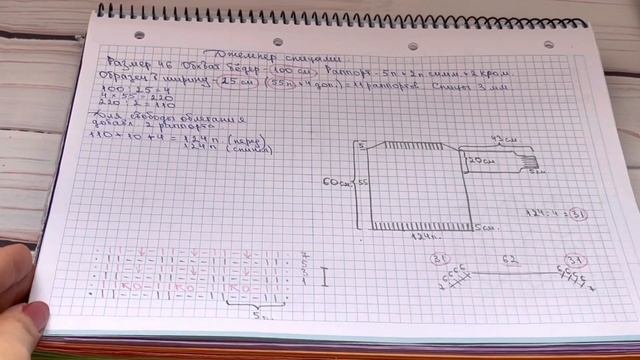 Джемпер спицами
Размер 46 Обхват бёдер - 100 см Раппорт - 5п + 2п симм. + 2 кром.
Образец в ширину - 25 см (55п + 4 доп.) = 11 раппортов Спицы 3 мм
100 : 25 = 4
4 × 55 = 220
220 : 2 = 110
Для свободы облегания
добавл. 2 раппорта
110 + 10 + 4 = 124 п. (перед)
124 п. (спинка)
43 см
5
20 см
5 см
60 см
55
124 : 4 = 31
5 см
124 п.
31
62
31
7
5
3
1
5 п.